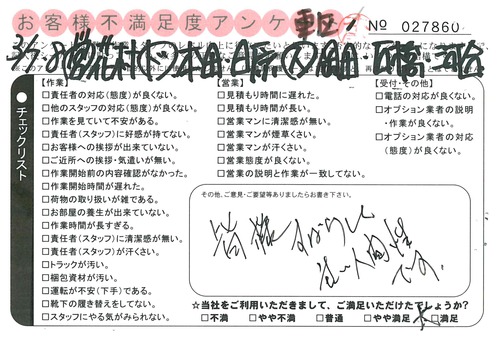 お客様不満足度アンケ
No 027860
チェックリスト
【作業】
□責任者の対応(態度)が良くない。
□他のスタッフの対応(態度)が良くない。
□作業を見ていて不安がある。
□責任者(スタッフ)に好感が持てない。
□お客様への挨拶が出来ていない。
□ご近所への挨拶・気遣いが無い。
□作業開始前の内容確認がなかった。
□作業開始時間が遅れた。
□荷物の取り扱いが雑である。
□お部屋の養生が出来ていない。
□作業時間が長すぎる。
□責任者(スタッフ)に清潔感が無い。
□責任者(スタッフ)が汗くさい。
□トラックが汚い。
□梱包資材が汚い。
□運転が不安(下手)である。
□靴下の履き替えをしてない。
□スタッフにやる気がみられない。
【営業】
□見積もり時間に遅れた。
□見積もり時間が長い。
□営業マンに清潔感が無い。
□営業マンが煙草くさい。
□営業マンが汗くさい。
□営業態度が良くない。
□営業の説明と作業が一致してない。
【受付・その他】
□電話の対応が良くない。
□オプション業者の説明
・作業が良くない。
□オプション業者の対応
(態度)が良くない。
その他、ご意見・ご要望等ありましたらお書き下さい。
皆様すばらしい
です。
☆当社をご利用いただきまして、ご満足いただけたでしょうか?
□不満 □やや不満 □普通 □やや満足 □満足